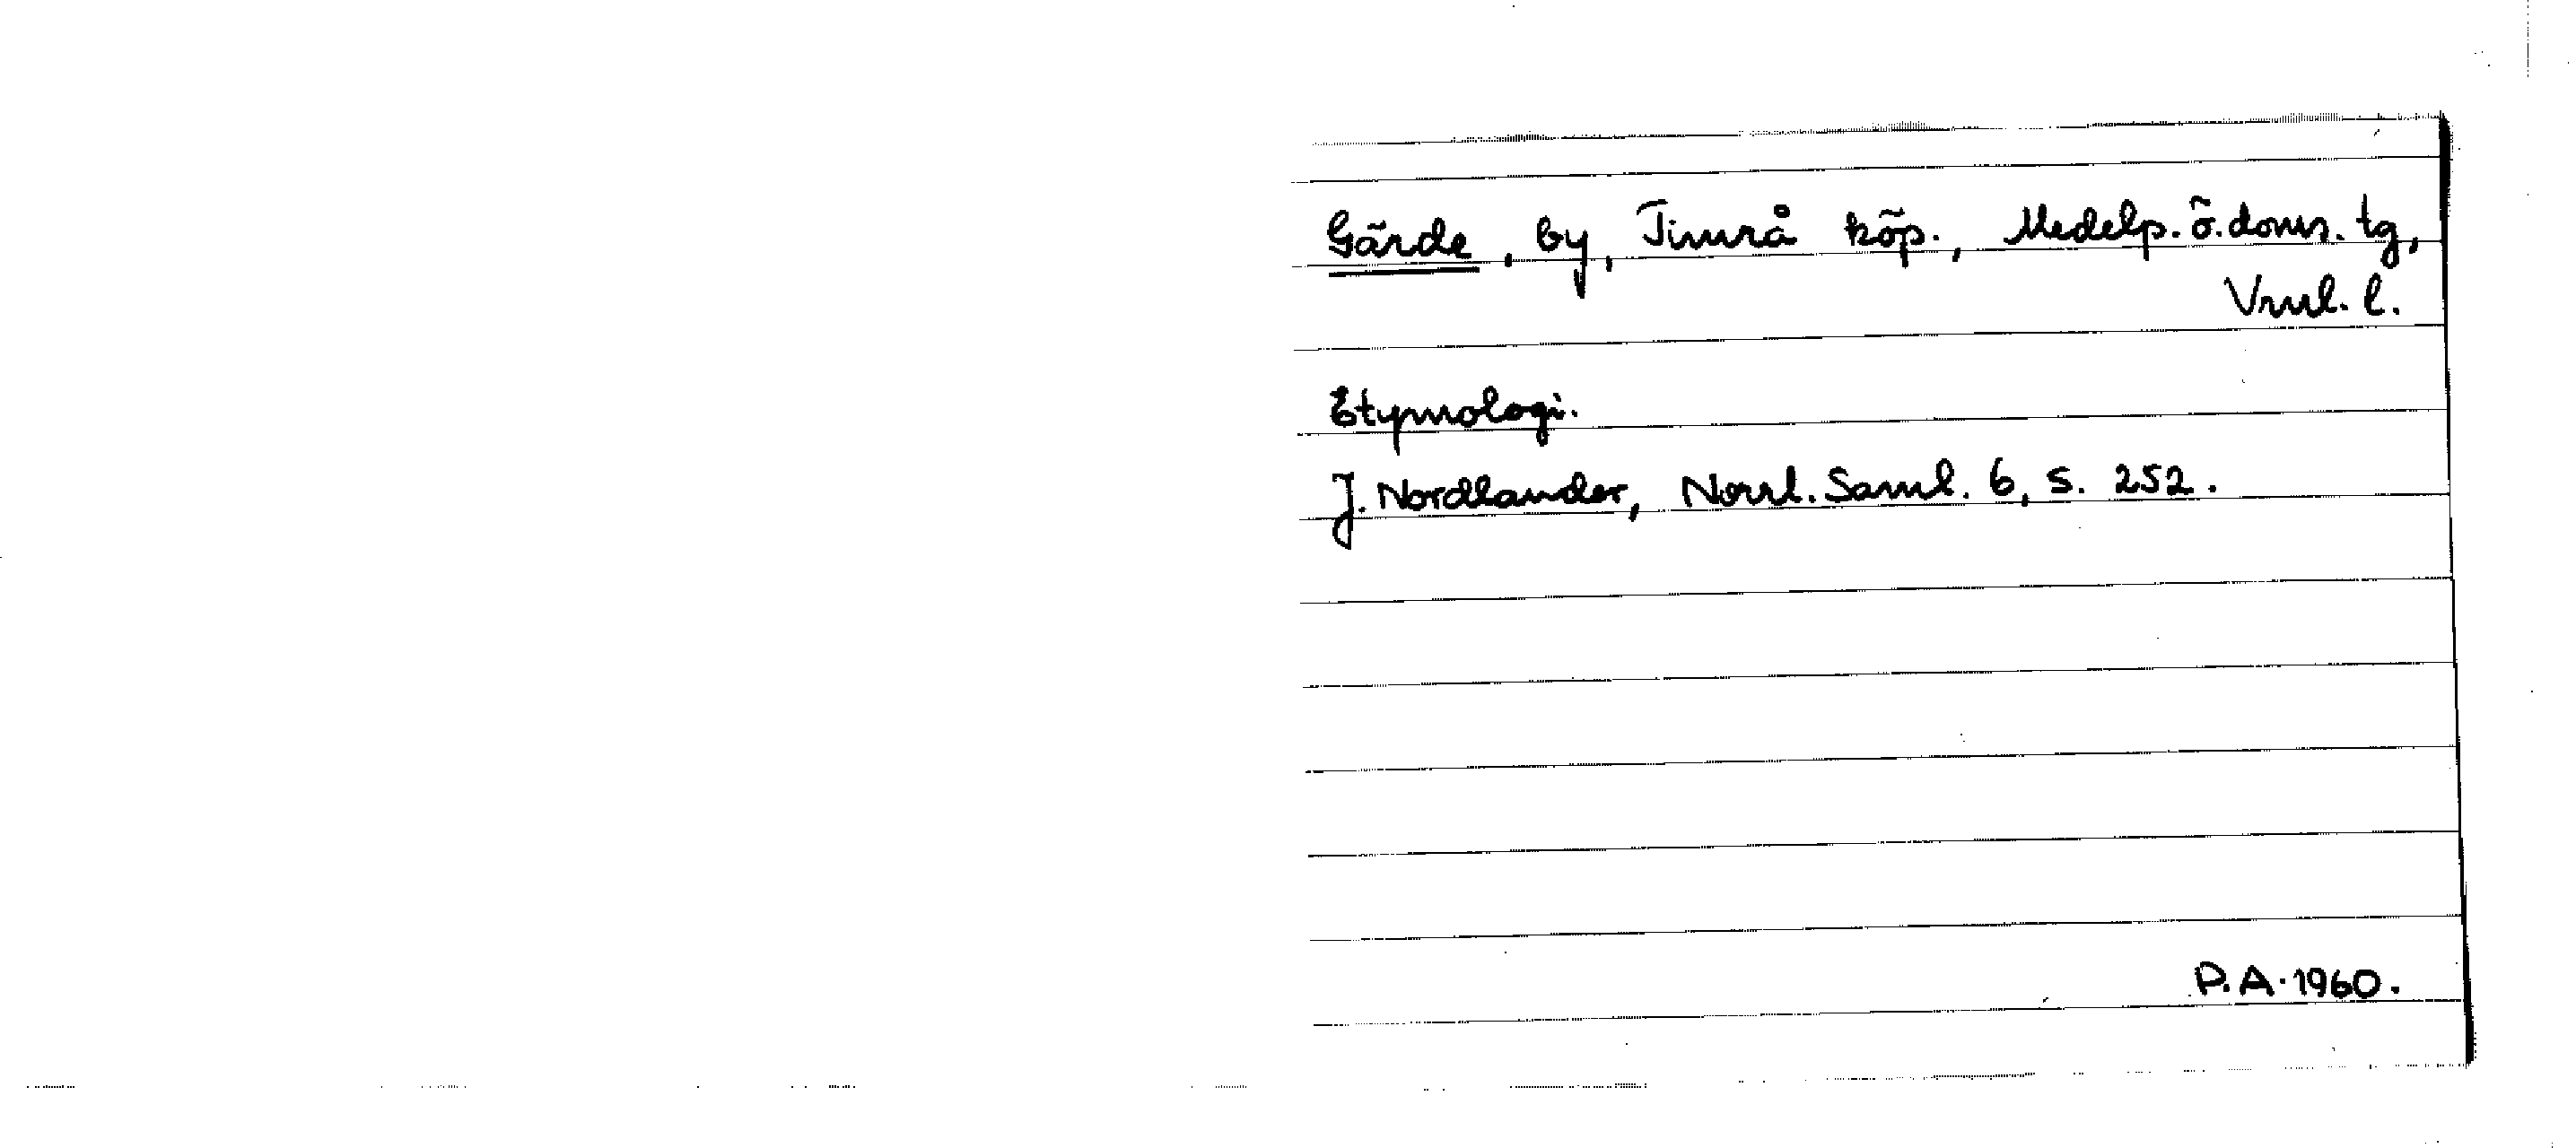 Gärde, by, Timrå köp., Medelp. ö. doms. tg,
Vnrl. l.
Etymologi.
J. Nordlander, Norrl. Saml. 6, s. 252.
P.A. 1960.